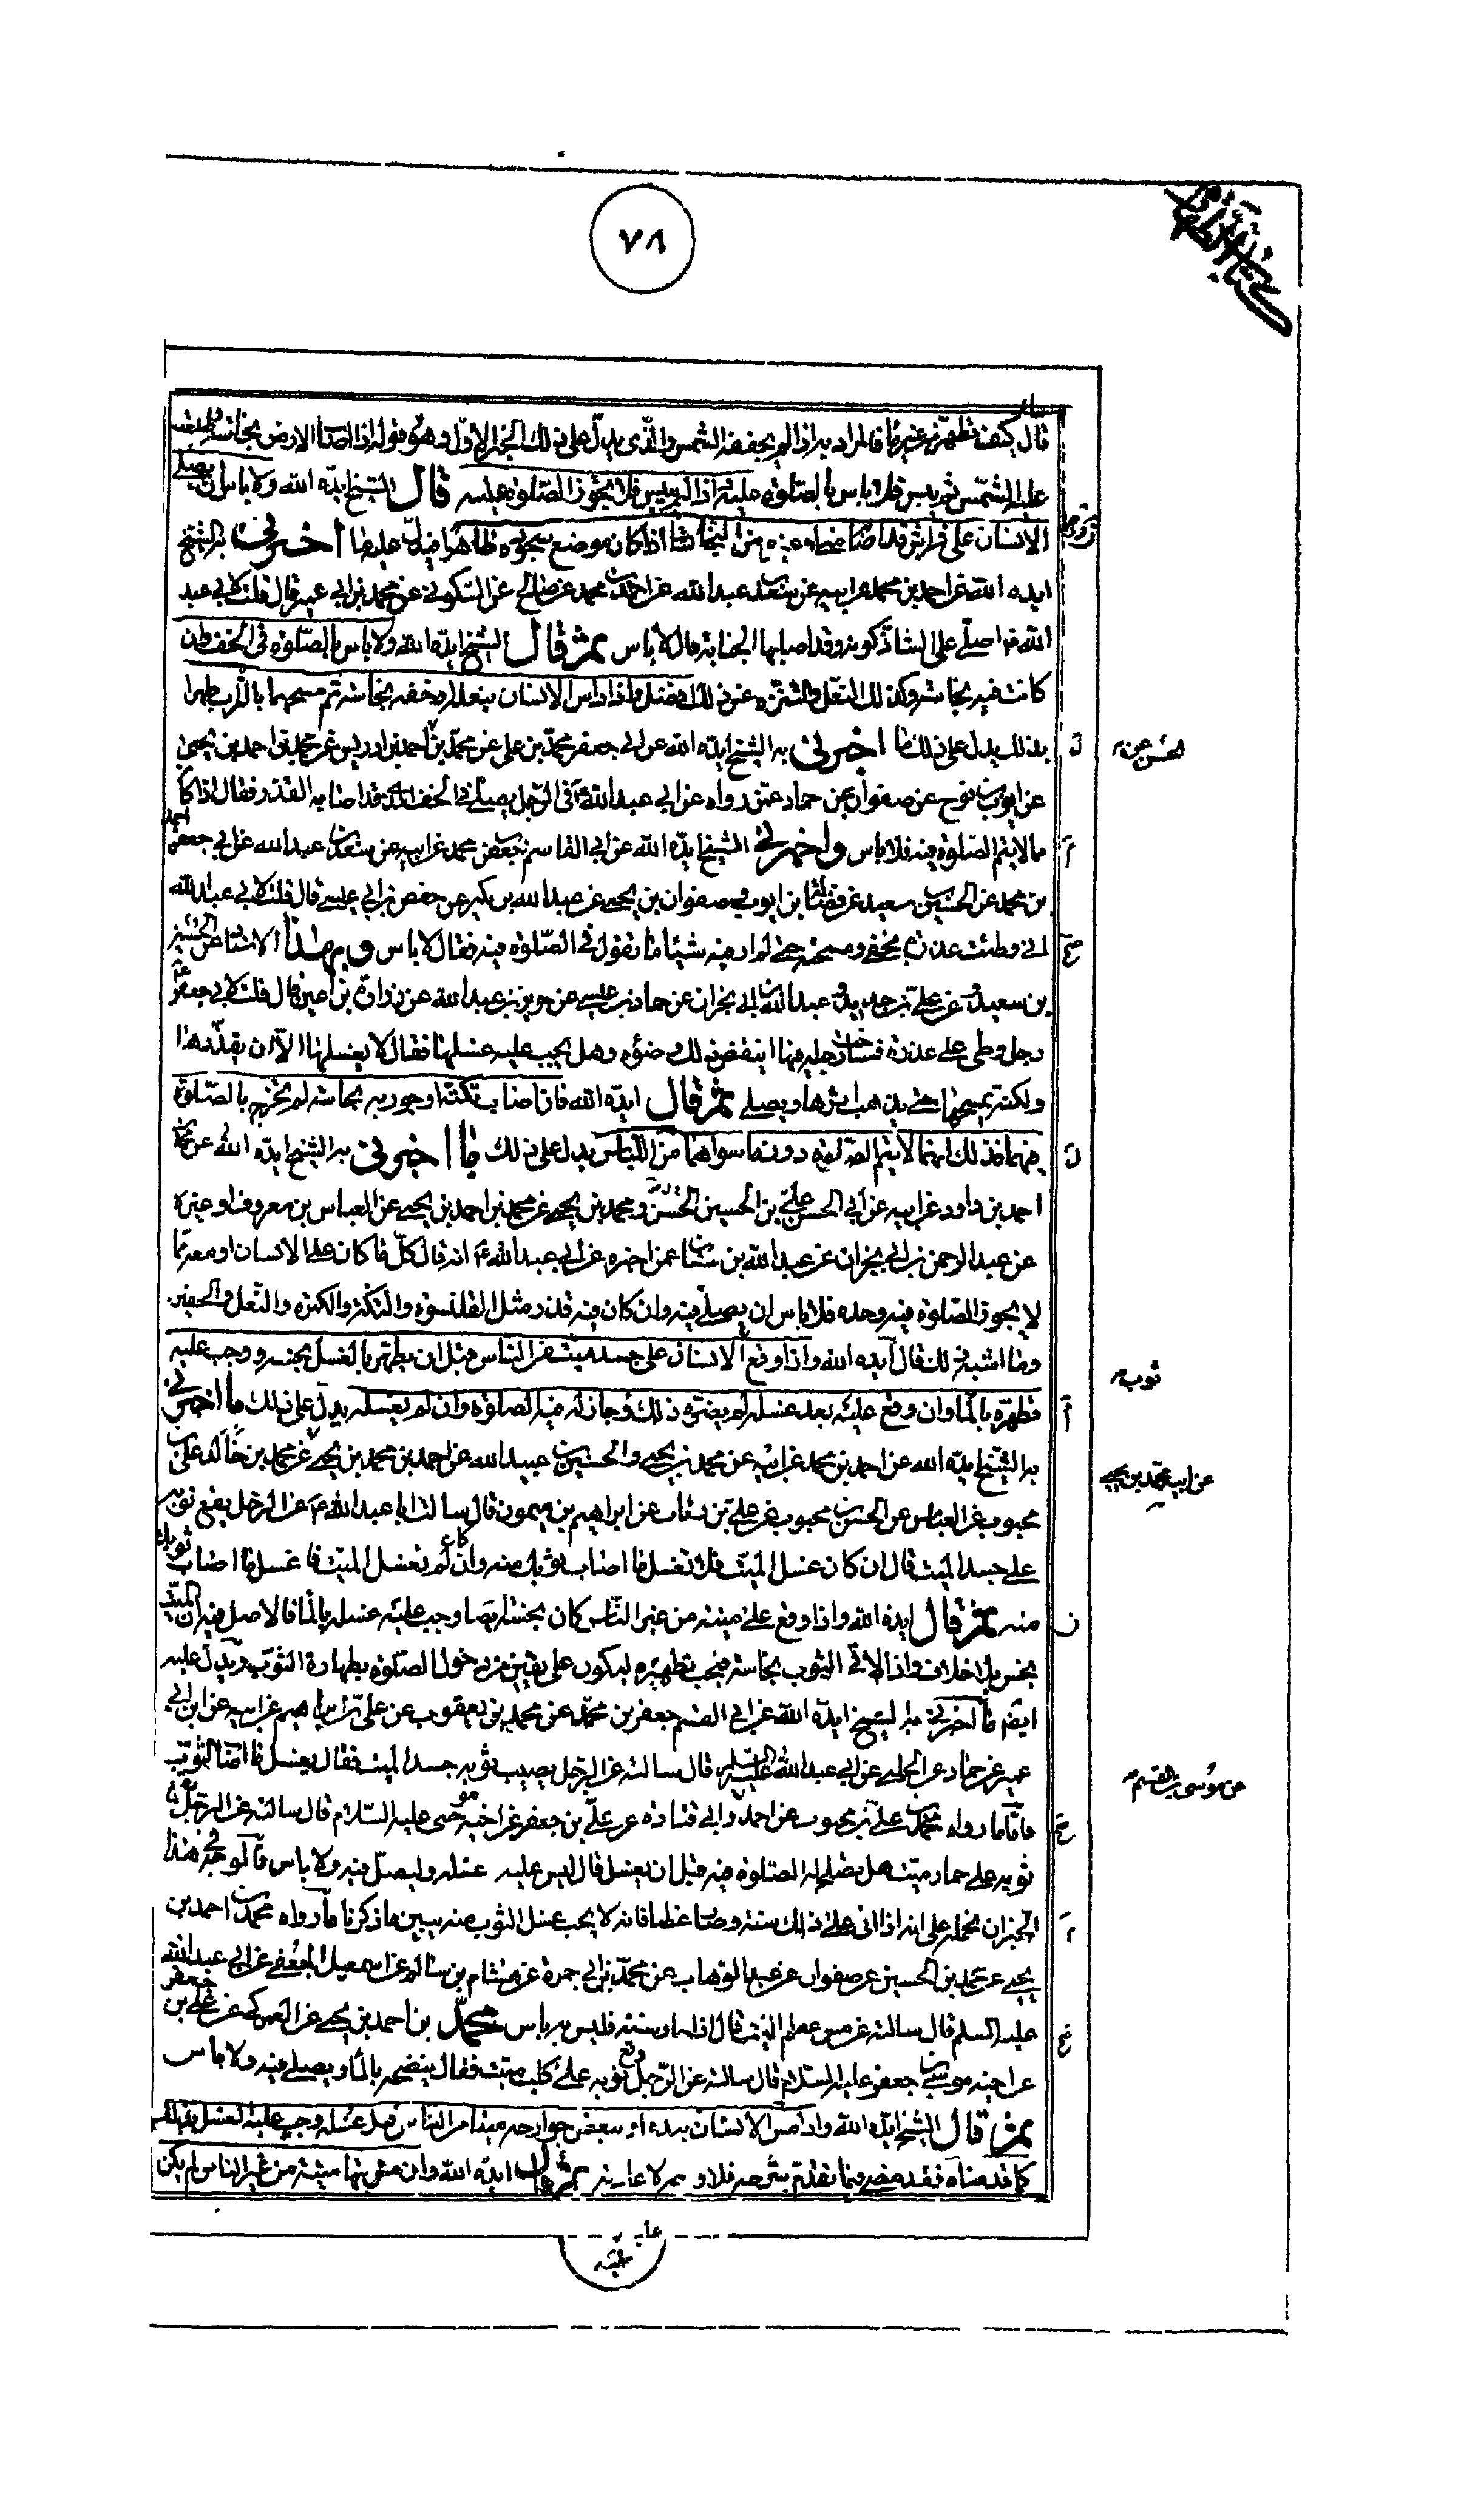 كتاب الطهارة
٧٨
قال كيف تطهر من غير ماء فالمراد به اذا لم يجففه الشمس والذى يدل على ذلك الخبر الاول وهو قوله اذا اصاب الارض نجاسة ثم طلعت
عليه الشمس ثم يبس فلا باس بالصلوة عليه فاذا لم ييبس فلا يجوز الصلوة عليه قال الشيخ ايده الله ولا باس ان يصلى
الانسان على فراش قد اصابه منى او غيره من النجاسات اذا كان موضع سجوده طاهرا فيدل عليه ما اخبرنى به الشيخ
ايده الله عن احمد بن محمد عن ابيه عن سعد بن عبد الله عن احمد بن محمد عن صالح عن السكونى عن محمد بن ابى عمير قال قلت لابى عبد
الله ع اصلى على الشاذكونه وقد اصابها الجنابة قال لا باس ثم قال الشيخ ايده الله ولا باس بالصلوة فى الخف وان
كانت فيه نجاسة وكذلك النعل والتنزه عن ذلك افضل واذا داس الانسان بنعله او خفه نجاسة ثم مسحهما بالتراب طهرا
بذلك يدل على ذلك ما اخبرنى به الشيخ ايده الله عن ابى جعفر محمد بن على عن محمد بن احمد بن ادريس عن محمد بن احمد بن يحيى
عن ايوب بن نوح عن صفوان عن حماد عمن رواه عن ابى عبد الله ع فى الرجل يصلى فى الخف الذى قد اصابه القذر فقال اذا كان
مما لا يتم الصلوة فيه فلا باس واخبرنى الشيخ ايده الله عن ابى القاسم جعفر بن محمد عن ابيه عن سعد بن عبد الله عن ابى جعفر احمد
بن محمد عن الحسين بن سعيد عن فضالة بن ايوب وصفوان بن يحيى عن عبد الله بن بكير عن حفص بن ابى عيسى قال قلت لابى عبد الله
انى وطئت عذرة بخفى ومسحته حتى لم ار فيه شيئا ما تقول فى الصلوة فيه فقال لا باس وبهذا الاسناد عن الحسين
بن سعيد عن على بن حديد و عبد الرحمن بن ابى نجران عن حماد بن عيسى عن حريز بن عبد الله عن زرارة بن اعين قال قلت لابى جعفر ع
رجل وطى على عذرة فساخت رجله فيها اينقض ذلك وضوءه وهل يجب عليه غسلها فقال لا يغسلها الا ان يقذرها
ولكنه يمسحها حتى يذهب اثرها ويصلى ثم قال ايده الله فان اصاب تكته او جوربه نجاسة لم يخرج بالصلوة
فيهما وذلك انهما لا يتم الصلوة دون ما سواهما من اللباس يدل على ذلك ما اخبرنى به الشيخ ايده الله عن محمد بن
احمد بن داود عن ابيه عن ابى الحسن على بن الحسين ومحمد بن يحيى عن محمد بن احمد بن يحيى عن العباس بن معروف او غيره
عن عبد الرحمن بن ابى نجران عن عبد الله بن سنان عمن اخبره عن ابى عبد الله ع انه قال كل ما كان على الانسان او معه مما
لا يجوز الصلوة فيه وحده فلا باس ان يصلى فيه وان كان فيه قذر مثل القلنسوة والتكة والكمرة والنعل والخفين
وما اشبه ذلك قال ايده الله واذا وقع الانسان على جسد ميت من الناس قبل ان يطهر بالغسل نجسه ووجب عليه
تطهره بالماء وان وقع عليه بعد غسله لم يضره ذلك وجاز له فيه الصلوة وان لم يغسله يدل على ذلك ما اخبرنى
به الشيخ ايده الله عن احمد بن محمد عن ابيه عن محمد بن يحيى والحسين بن عبيد الله عن احمد بن محمد بن يحيى عن محمد بن على بن
محبوب عن العباس عن الحسن بن محبوب عن على بن رئاب عن ابراهيم بن ميمون قال سالت ابا عبد الله ع عن الرجل يقع ثوبه
على جسد الميت قال ان كان غسل الميت فلا تغسل ما اصاب ثوبك منه وان كان لم تغسل الميت فاغسل ما اصاب ثوبك
منه ثم قال ايده الله واذا وقع على ميتة من غير الناس كان نجسه ايضا ووجب عليه غسله بالماء فالاصل فيه ان الميتة
نجس بلا خلاف واذا لاقى الثوب نجاسة فيجب تطهيره ليكون على يقين من دخول الصلوة بطهارة الثوب ويدل عليه
ايضا ما اخبرنى به الشيخ ايده الله عن ابى القسم جعفر بن محمد عن محمد بن يعقوب عن على بن ابراهيم عن ابيه عن ابن ابى
عمير عن حماد عن الحلبى عن ابى عبد الله عليه السلم قال سالته عن الرجل يصيب ثوبه جسد الميت فقال يغسل ما اصاب الثوب
فاما ما رواه محمد بن على بن محبوب عن احمد وابى قتادة عن على بن جعفر عن اخيه موسى عليه السلام قال سالته عن الرجل وقع
ثوبه على حمار ميت هل يصلح له الصلوة فيه قبل ان يغسله قال ليس عليه غسله وليصل فيه ولا باس فالوجه فى هذا
الخبر ان نحمله على انه اذا اتى على ذلك سنة وصار عظما فانه لا يجب غسل الثوب منه يبين ما ذكرنا ما رواه محمد بن احمد بن
يحيى عن محمد بن الحسين عن صفوان عن عبد الوهاب عن محمد بن ابى حمزة عن هشام بن سالم عن اسمعيل الجعفى عن ابى عبد الله
عليه السلم قال سالته عن مس عظم الميت قال اذا جاز سنة فليس به باس محمد بن احمد بن يحيى عن العمركى عن على بن جعفر
عن اخيه موسى بن جعفر عليه السلام قال سالته عن الرجل وقع ثوبه على كلب ميت فقال ينضحه بالماء ويصلى فيه ولا باس
ثم قال الشيخ ايده الله واذا مس الانسان بيده او ببعض جوارحه ميتا من الناس قبل غسله وجب عليه الغسل لذلك
كما قدمناه فقد مضى فيما تقدم شرحه فلا وجه لاعادته ثم قال ايده الله وان مس بها ميتة من غير الناس لم يكن
الحسن عن
ثوب
عن ابيه محمد بن يحيى
عن موسى بن القسم
عليه